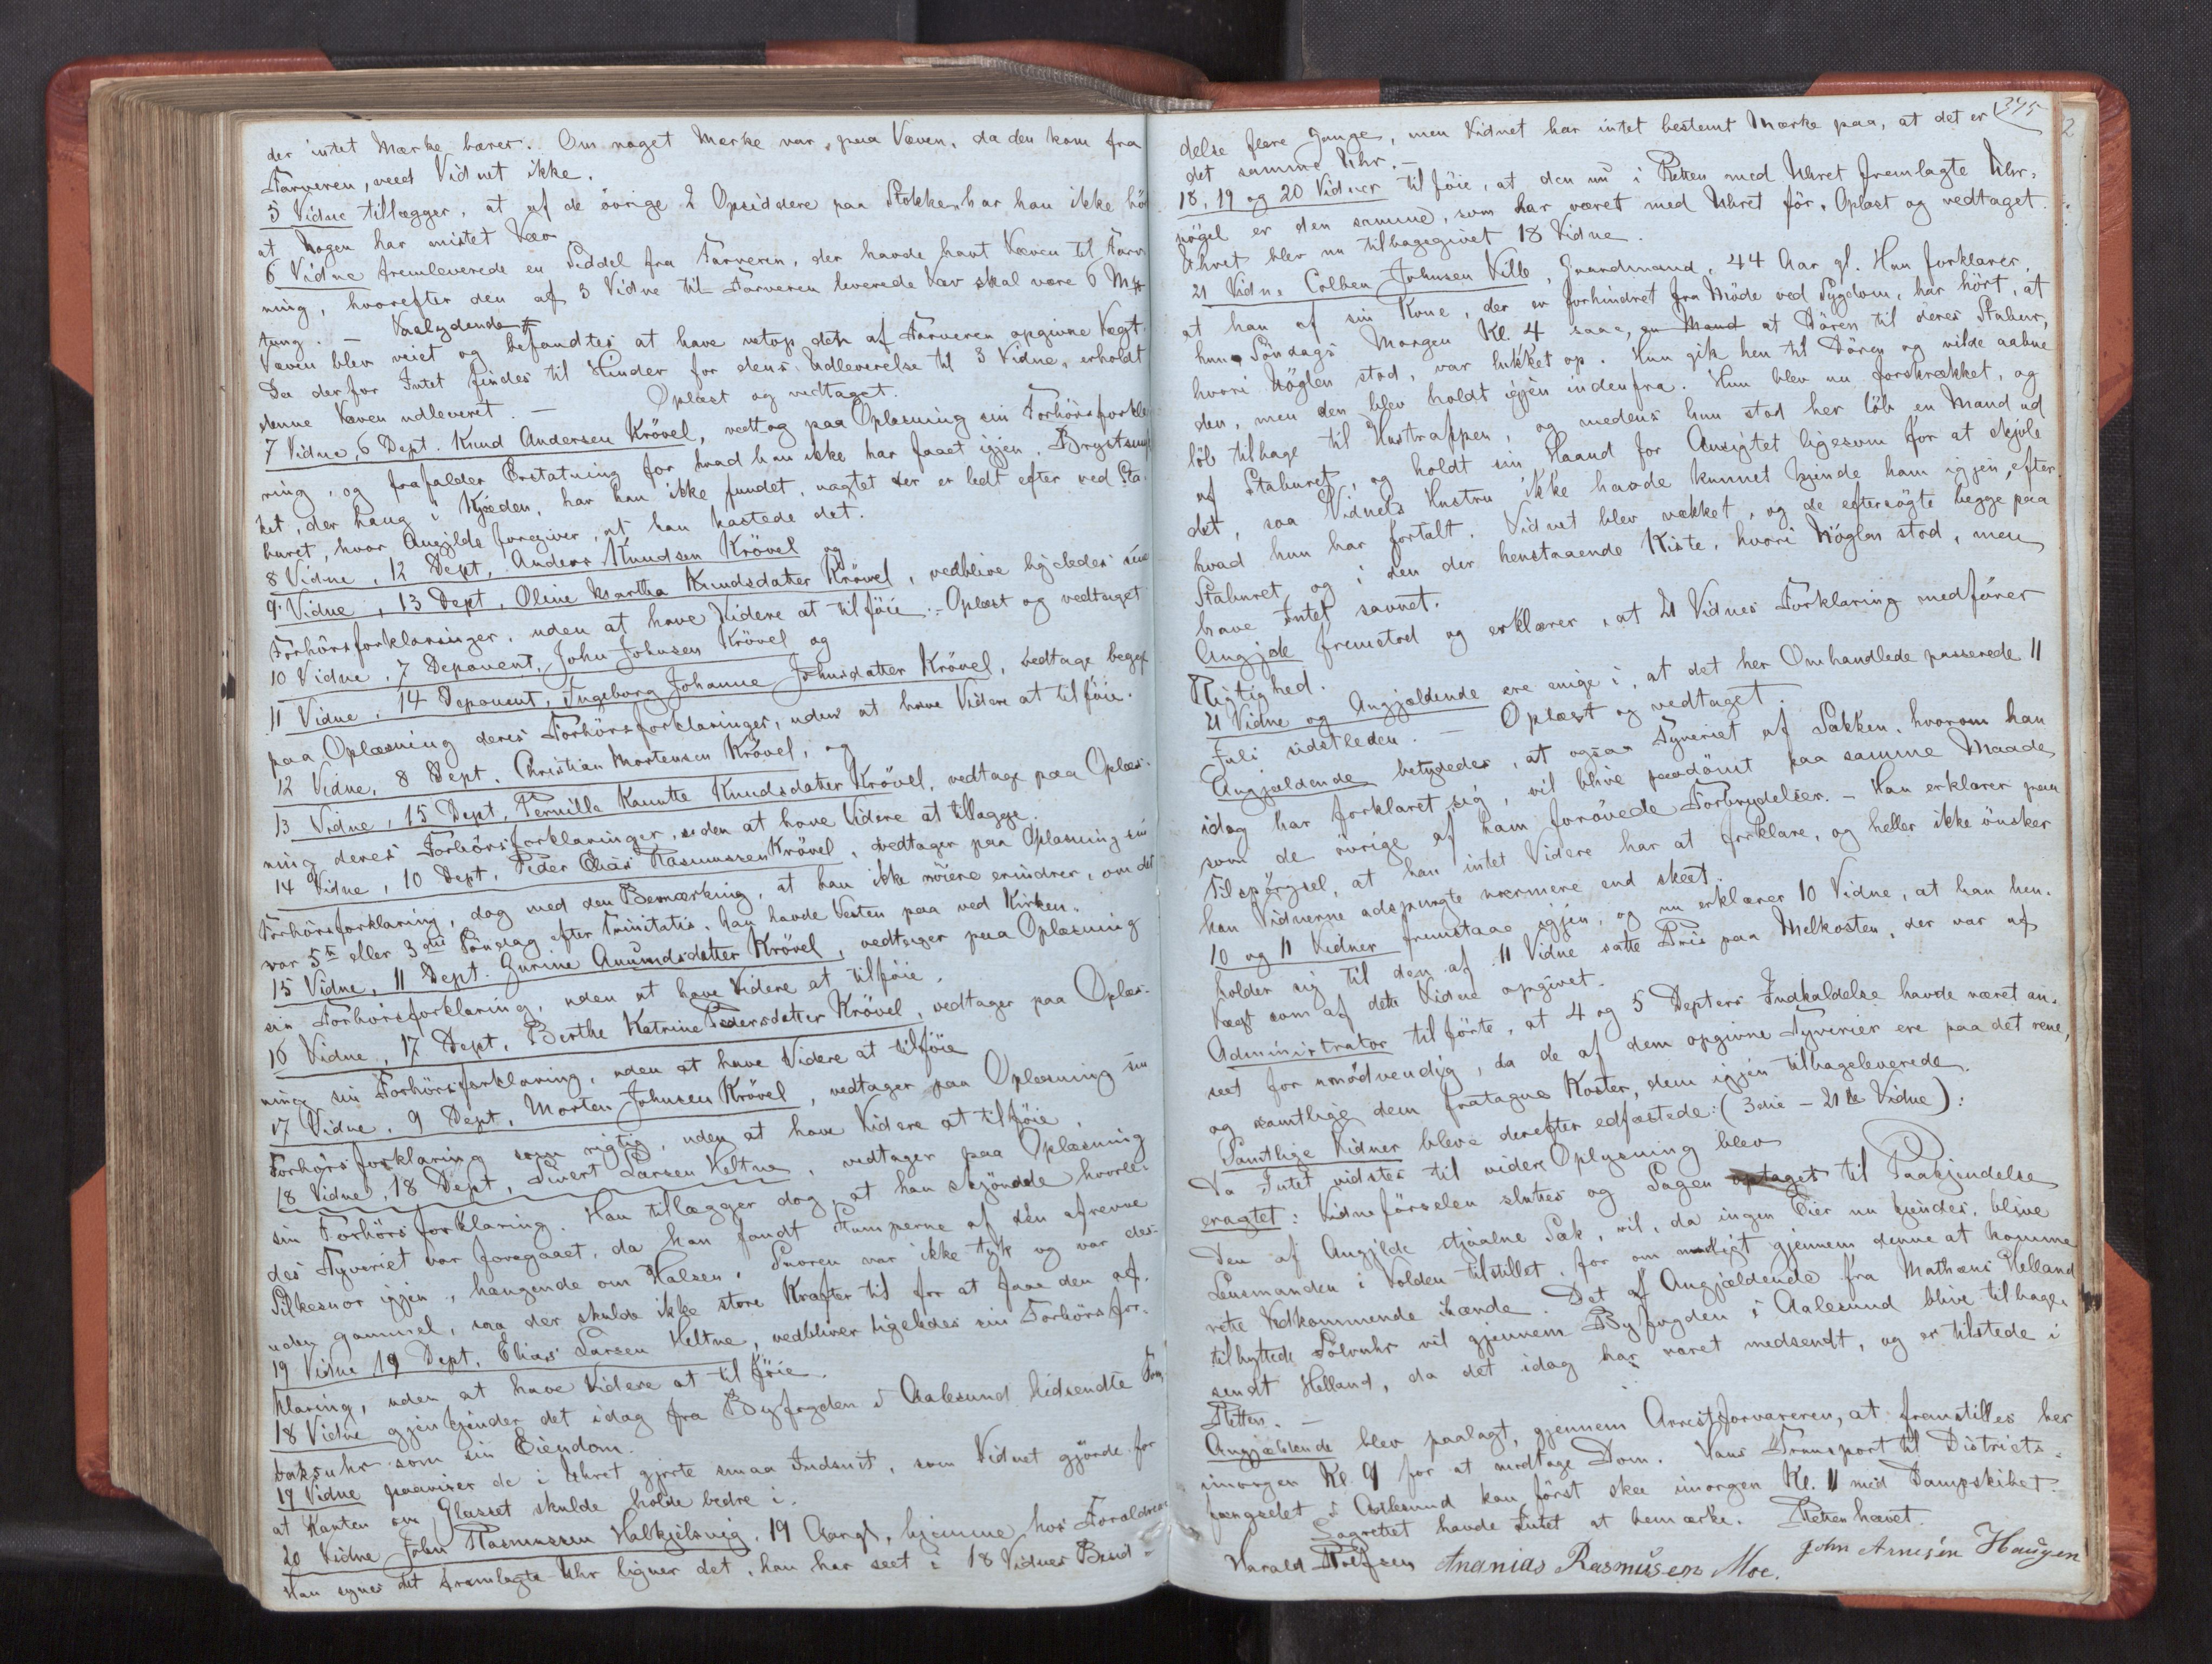 der intet Mærke bærer. Om noget Mærke var paa Væven, da den kom fra
Farveren, veed Vidnet ikke.
5 Vidne tillægger, at af de övrige 2 Opsiddere paa Stokke har han ikke hört
at Nogen har mistet Væv.
6 Vidne fremleverede en Seddel fra Farveren, der havde havt Væven til Farv-
ning, hvorefter den af 3 Vidne til Farveren leverede Væv skal være 6 Mrk
tung. – Vaalydende
Væven blev veiet og befandtes at have netop den af Farveren opgivne Vægt.
Da derfor Intet findes til Hinder for dens Udleverelse til 3 Vidne, erholdt
denne Væven udleveret. – Oplæst og vedtaget.
7 Vidne, 6 Dept. Knud Andersen Krövel, vedtog paa Oplæsning sin Forhörsforkla-
ring, og frafalder Erstatning for hvad han ikke har faaet igjen. Brystsmyk-
ket, der hang i Kjæden, har han ikke fundet, uagtet der er ledt efter ved Sta-
buret, hvor Angjælde foregiver, at han kastede det.
8 Vidne, 12 Dept, Anders Knudsen Krövel og
9 Vidne, 13 Dept, Oline Martha Knudsdatter Krövel, vedblive ligeledes sine
Forhörsforklaringer, uden at have Videre at tilföie. – Oplæst og vedtaget
10 Vidne, 7 Deponent, John Johnsen Krövel og
11 Vidne, 14 Deponent, Ingeborg Johanne Johnsdatter Krövel, vedtage begge
paa Oplæsning deres Forhörsforklaringer, uden at have Videre at tilföie.
12 Vidne, 8 Dept. Christian Mortensen Krövel, og
13 Vidne, 15 Dept, Pernille Knudsdatter Krövel, vedtage paa Oplæs-
ning deres Forhörsforklaringer, uden at have Videre at tillægge.
14 Vidne, 10 Dept, Peder Elias Rasmussen Krövel, vedtager paa Oplæsning sin
Forhörsforklaring, dog med den Bemærkning, at han ikke nöiere erindrer, om det
var 5te eller 3die Söndag efter Trinitatis, han havde Vesten paa ved Kirken.
15 Vidne, 11 Dept. Gurine Amundsdatter Krövel, vedtager paa Oplæsning
sin Forhörsforklaring, uden at have Videre at tilföie.
16 Vidne, 17 Dept, Berthe Katrine Pedersdatter Krövel, vedtager paa Oplæs-
ning sin Forhörsforklaring, uden at have Videre at tilföie
17 Vidne, 9 Dept, Morten Johnsen Krövel, vedtager paa Oplæsning sin
Forhörsforklaring som rigtig, uden at have Videre at tilföie.
18 Vidne, 18 Dept, Sivert Larsen Veltne, vedtager paa Oplæsning
sin Forhörsforklaring. Han tillægger dog, at han skjöndte hvorle-
des Tyveriet var foregaaet, da han fandt Stumperne af den afrevne
Silkesnor igjen, hængende om Halsen. Snoren var ikke tyk og var des-
uden gammel, saa der skulde ikke store Kræfter til for at faae den af.
19 Vidne, 19 Dept, Elias Larsen Veltne, vedbliver ligeledes sin Forhörsfor-
klaring, uden at have Videre at tilföie.
18 Vidne gjenkjender det idag fra Byfogden i Aalesund hidsendte
Uhr som sin Eiendom.
19 Vidne paaviser de i Uhret gjorte smaa Indsnit, som Vidnet gjörde for
at Kanten om Glasset skulde holde bedre i.
20 Vidne John Rasmussen Halkjelsvig, 19 Aar gl, hjemme hos Forældrene
Han synes det fremlagte Uhr ligner det, han har seet i 18 Vidnes Besid-
345
delse flere Gange, men Vidnet har intet bestemt Mærke paa, at det er
det samme Uhr. –
18, 19 og 20 Vidner tilföie, at den nu i Retten med Uhret fremlagte Uhr-
nögel er den samme, som har været med Uhret för. Oplæst og vedtaget.
Uhret blev nu tilbagegivet 18 Vidne.
21 Vidne Colben Johnsen Velle, Gaardmand, 44 Aar gl. Han forklarer,
at han af sin Kone, der er forhindret fra Möde ved Sygdom, har hört, at
hun Söndags Morgen Kl. 4 saae, en Mand at Dören til deres Stabur,
hvori Nöglen stod, var lukket op. Hun gik hen til Dören og vilde aabne
den, men den blev holdt igjen indenfra. Hun blev nu forskrækket, og
löb tilbage til Hustrappen, og medens hun stod her löb en Mand ud
af Staburet, og holdt sin Haand for Ansigtet ligesom for at skjule
det, saa Vidnets Hustru ikke havde kunnet kjende ham igjen, efter
hvad hun har fortalt. Vidnet blev vækket, og de eftersögte begge paa
Staburet og i den der henstaaende Kiste, hvori Nöglen stod, men
have Intet savnet.
Angjælde fremstod og erklærer, at 21 Vidnes Forklaring medförer
Rigtighed.
21 Vidne og Angjældende ere enige i, at det her Omhandlede passerede 11
Juli sidstleden. – Oplæst og vedtaget.
Angjældende betydedes, at ogsaa Tyveriet af Sækken, hvorom han
idag har forklaret sig, vil blive paadömt paa samme Maade
som de övrige af ham forövede Forbrydelser. – Han erklærer paa
Tilspörgsel, at han intet Videre har at forklare, og heller ikke önsker
han Vidnerne adspurgte nærmere end skeet.
10 og 11 Vidner fremstaae igjen, og nu erklærer 10 Vidne, at han hen-
holder sig til den af 11 Vidne satte Pris paa Melkosten, der var af
Vægt som af dette Vidne opgivet.
Administrator tilförte, at 4 og 5 Depters Indkaldelse havde været an-
seet for unödvendig, da de af dem opgivne Tyverier ere paa det rene,
og samtlige dem fratagne Koster, dem igjen tilbageleverede.
Samtlige Vidner bleve derefter edfæstede: (3die – 21de Vidne):
Da Intet vidstes til videre Oplysning blev
eragtet: Vidneförselen sluttes og Sagen optages til Paakjendelse
Den af Angjælde stjaalne Sæk, vil, da ingen Eier nu kjendes, blive
Lensmanden i Volden tilstillet, for om muligt gjennem denne at komme
rette Vedkommende ihænde. Det af Angjældende fra Mathæus Helland
tilbyttede Sölvuhr vil gjennem Byfogden i Aalesund blive tilbage-
sendt Helland, da det idag har været medsendt, og er tilstede i
Retten. –
Angjældende blev paalagt, gjennem Arrestforvareren, at fremstilles her
imorgen Kl. 9 for at modtage Dom. Hans Transport til Districts-
fængselet i Aalesund kan först skee imorgen Kl. 11 med Dampskibet.
Lagrettet havde Intet at bemærke. Retten hævet.
Harald Ananias Rasmusen Moe. John Arnesen Haugen